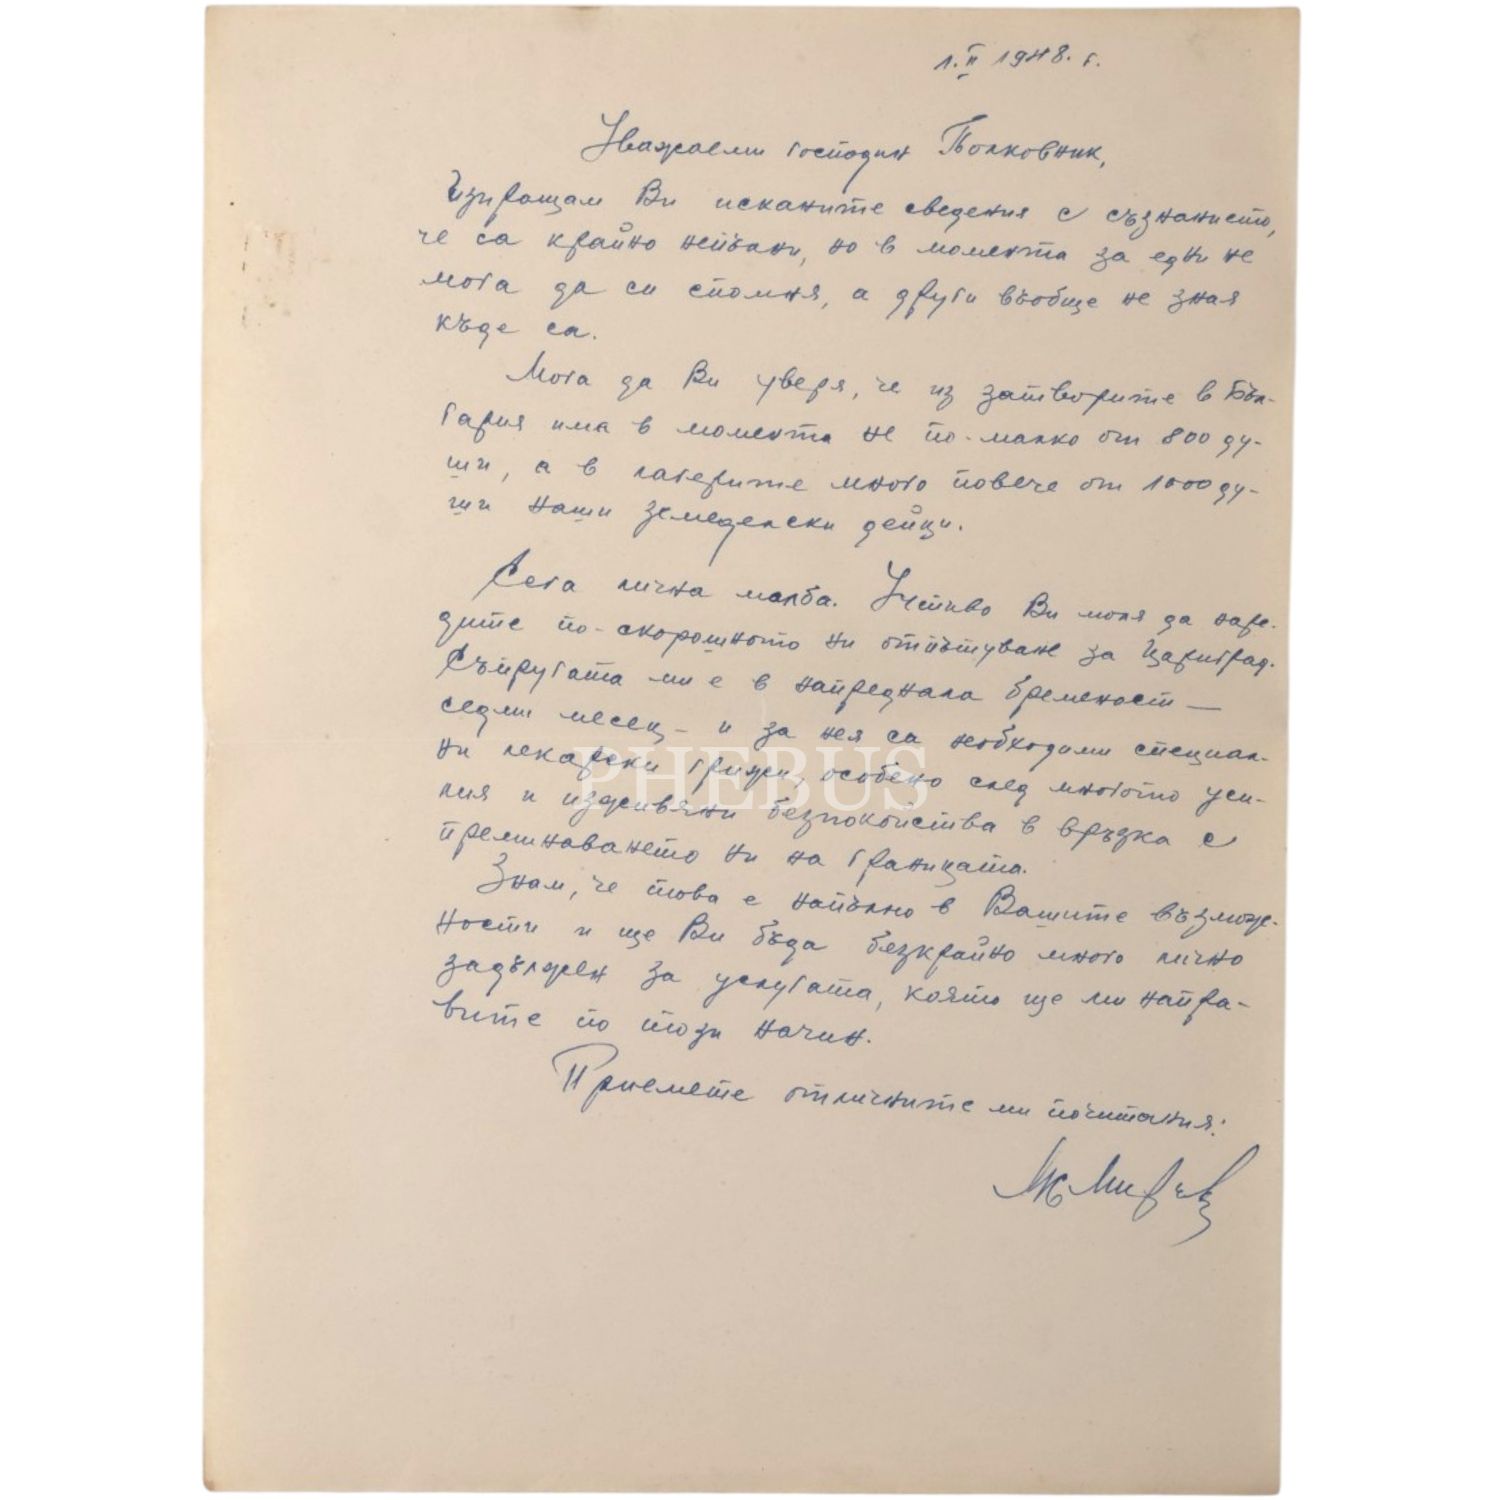 1.II 1948. г.
Уважаеми господин Полковник,
Изпращам Ви исканите сведения с съзнанието,
че са крайно непълни, но в момента за едни не
мога да си спомня, а други въобще не зная
къде са.
Мога да Ви уверя, че из затворите в Бъл-
гария има в момента не по-малко от 800 ду-
ши, а в лагерите много повече от 1000 ду-
ши наши земеделски дейци.
Сега лична молба. Учтиво Ви моля да наре-
дите по-скорошното ни отпътуване за Цариград.
Съпругата ми е в напреднала бременост —
седми месец - и за нея са необходими специал-
ни лекарски грижи, особено след многото уси-
лия и изживяни безпокойства в връзка с
преминаването ни на границата.
Знам, че това е напълно в Вашите възмож-
ности и ще Ви бъда безкрайно много лично
задължен за услугата, която ще ми напра-
вите по този начин.
Приемете отличните ми почитания:
PHEBUS